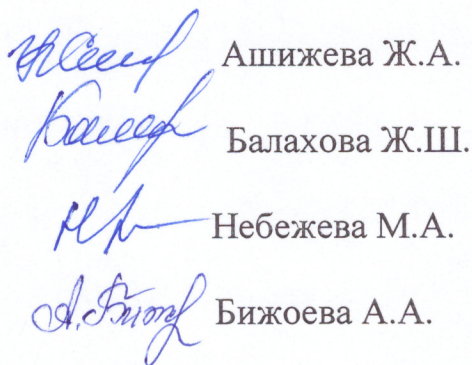 Ашижева Ж.А.
Балахова Ж.Ш.
Небежева М.А.
Бижоева А.А.